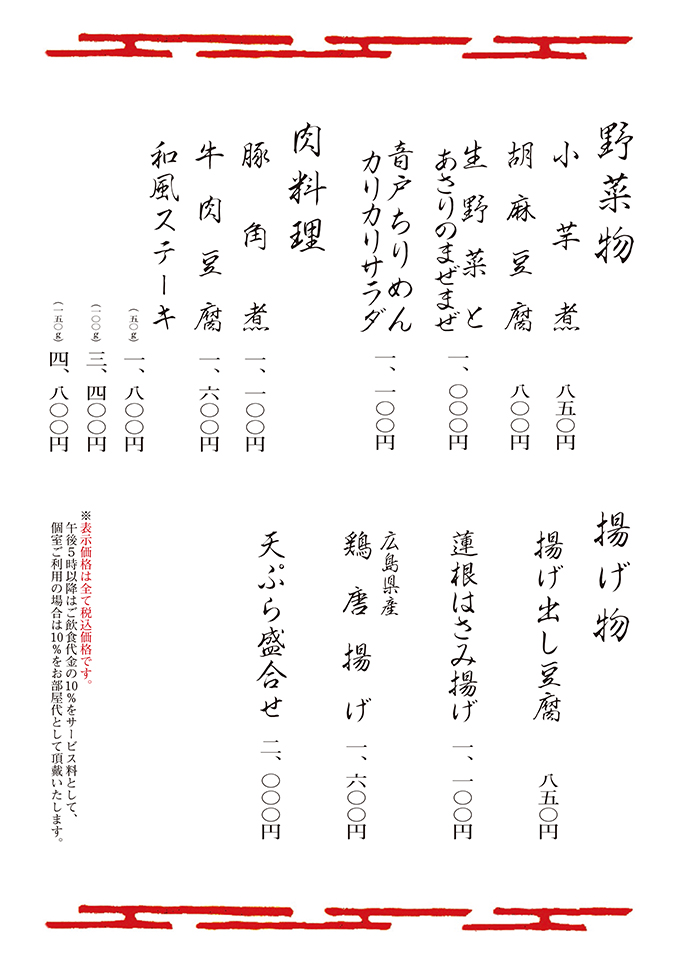 野菜物
小芋煮 八五〇円
胡麻豆腐 八〇〇円
生野菜と
あさりのまぜまぜ 一、〇〇〇円
音戸ちりめん
カリカリサラダ 一、一〇〇円
肉料理
豚角煮 一、一〇〇円
牛肉豆腐 一、六〇〇円
和風ステーキ
（五〇g） 一、八〇〇円
（一〇〇g） 三、四〇〇円
（一五〇g） 四、八〇〇円
揚げ物
揚げ出し豆腐 八五〇円
蓮根はさみ揚げ 一、一〇〇円
広島県産
鶏唐揚げ 一、六〇〇円
天ぷら盛合せ 二、〇〇〇円
※表示価格は全て税込価格です。
午後５時以降はご飲食代金の10％をサービス料として、
個室ご利用の場合は10％をお部屋代として頂戴いたします。